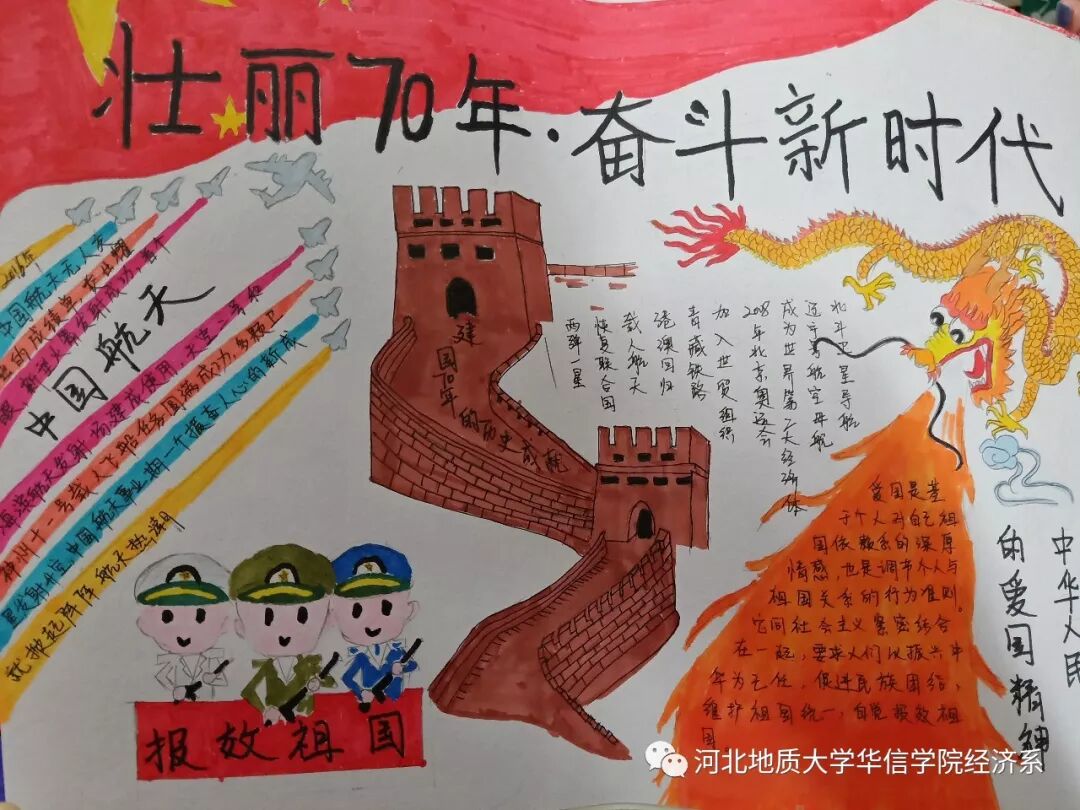 壮丽70年·奋斗新时代
2016年
中国航天九人交
的成绩单
海南航天发射场建成使用、天宫二号和
神州十一号载人飞船任务圆满成功、多颗卫
星发射升空，中国航天事业拥一个振奋人心的新成
就掀起阵阵航天热潮
中国航天
建国70年的历史成就
北斗卫星导航
辽宁号航空母舰
成为世界第二大经济体
2008年北京奥运会
加入世贸组织
青藏铁路
港澳回归
载人航天
恢复联合国
两弹一星
爱国是基
于个人对自己祖
国依赖关系的深厚
情感，也是调节个人与
祖国关系的行为准则。
它同社会主义紧密结合
在一起，要求人们以振兴中
华为己任，促进民族团结，
维护祖国统一，自觉报效祖
国
中华人民
的爱国精神
报效祖国
河北地质大学华信学院经济系